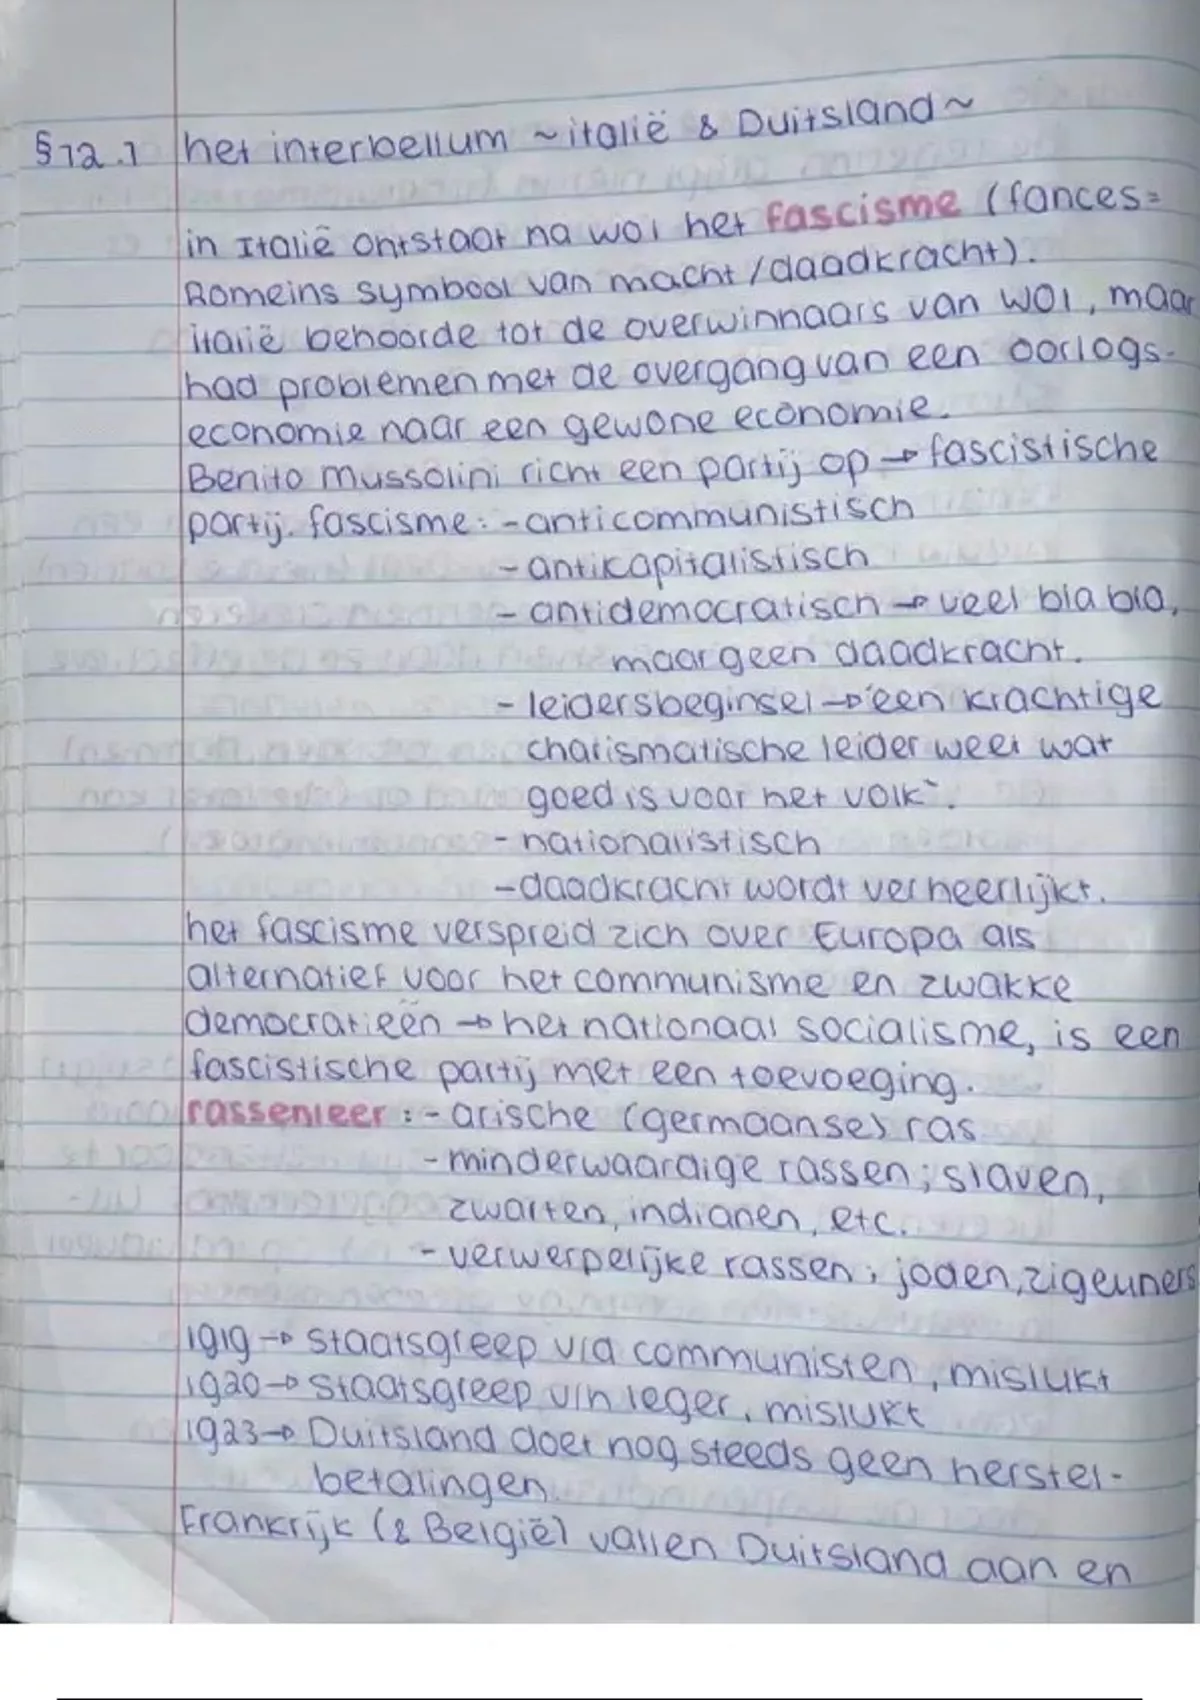 §12.1 het interbellum ~italië & Duitsland~
in Italië ontstaat na WOI het fascisme (fances=
Romeins symbool van macht/daadkracht).
italië behoorde tot de overwinnaars van WOI, maar
had problemen met de overgang van een oorlogs-
economie naar een gewone economie.
Benito Mussolini richt een partij op → fascistische
partij. fascisme: - anticommunistisch
- antikapitalistisch
- antidemocratisch → veel bla bla,
maar geen daadkracht.
- leidersbeginsel → 'een krachtige
charismatische leider weet wat
goed is voor het volk".
- nationalistisch
- daadkracht wordt verheerlijkt.
het fascisme verspreid zich over Europa als
alternatief voor het communisme en zwakke
democratieën → het nationaal socialisme, is een
fascistische partij met een toevoeging.
rassenleer: - arische (germaanse) ras
- minderwaardige rassen; slaven,
zwarten, indianen, etc.
- verwerpelijke rassen; joden, zigeuners
1919 → staatsgreep via communisten, mislukt
1920 → staatsgreep v/h leger, mislukt
1923 → Duitsland doet nog steeds geen herstel-
betalingen.
Frankrijk (& België) vallen Duitsland aan en